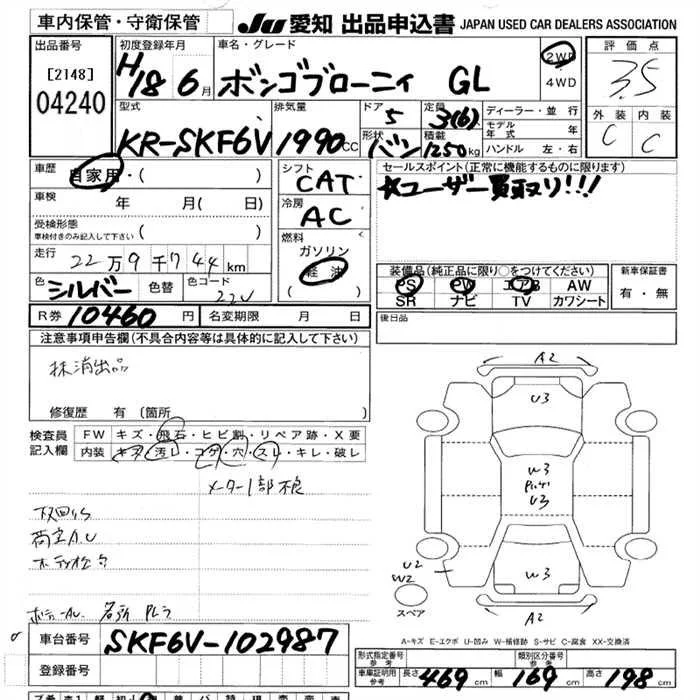 車内保管・守衛保管 JU 愛知 出品申込書 JAPAN USED CAR DEALERS ASSOCIATION
出品番号 初度登録年月 車名・グレード 評価点
[2148] H18 6月 ボンゴブローニィ GL 2WD 3.5
04240 4WD
型式 排気量 ドア 定員 ディーラー・並行 外装 内装
KR-SKF6V 1990cc 5 3(6) モデル年式 C C
形状 積載
バン 1250kg ハンドル 左・右
車歴 自家用・( ) シフト セールスポイント(正常に機能するものに限ります)
CAT ☆ユーザー買取り!!!
車検 年 月( 日) 冷房
AC
受検形態 燃料
車検付きのみ記入して下さい ( ) ガソリン
走行 22万9千744km 軽油 装備品(純正品に限り○をつけてください) 新車保証書
( ) PS PW エアB AW 有・無
色 シルバー 色替 色コード 22V SR ナビ TV カワシート
R券 10460円 名変期限 月 日 後日品
注意事項申告欄(不具合内容等は具体的に記入して下さい)
抹消出品 A2
U3
修復歴 有(箇所 )
検査員 FW キズ・飛石・ヒビ割・リペア跡・X要
記入欄 内装 キズ・汚レ・コゲ・穴・スレ・キレ・破レ
W3
メーター1部不良
U3
W3
U2
W2
スペア
A2
A-キズ E-エクボ U-凹み W-補修跡 S-サビ C-腐食 XX-交換済
車台番号 SKF6V-102987 形式指定番号 参考 類別区分番号 参考
登録番号 車庫証明用 参考 長さ 469cm 幅 169cm 高さ 198cm